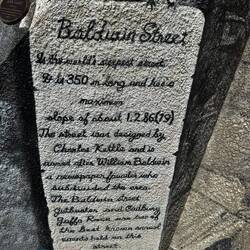 Baldwin Street
Is the world's steepest street
It is 350 m long and has a
maximum
slope of about 1.2.86(79)
The street was designed by
Charles Kettle and is
named after William Baldwin
a newspaper founder who
subdivided the area.
The Baldwin Street
Gutbuster and Cadbury
Jaffa Race are two of
the best known annual
events held on this
street